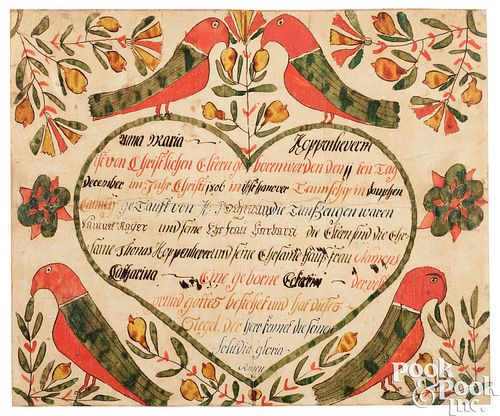 Anna Maria Koppenheverin
ist von Christlichen Eltern geboren worden den 11 ten Tag
December im Jahr Christi in Hanover Taunschip in Dauphen
County getauft von H die Taufzeugen waren
Samuel und seine Ehe frau Barbara die Eltern sind die Ehe
same Thomas Koppenhever und seine Ehesame Haus frau Namens
Catharina Eine geborne Der veste
grund gottes bestehet und hat dieses
Siegel der herr kennet die seinen
Soli dia gloria
Amen
POOK & POOK inc.